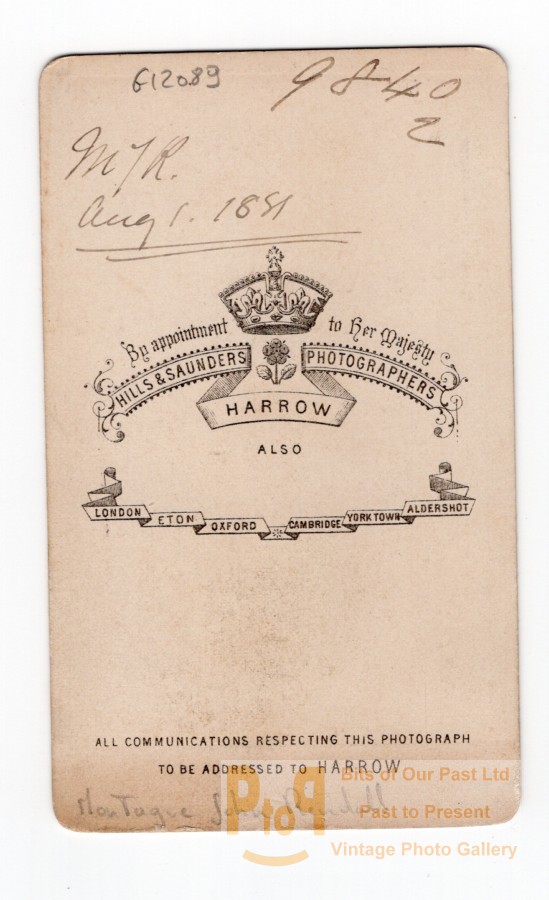 G12089
9840
2
MJR.
Aug 1. 1881
By appointment to Her Majesty
HILLS & SAUNDERS PHOTOGRAPHERS
HARROW
ALSO
LONDON ETON OXFORD CAMBRIDGE YORKTOWN ALDERSHOT
ALL COMMUNICATIONS RESPECTING THIS PHOTOGRAPH
TO BE ADDRESSED TO HARROW
Montague John Rendall
PtoP
Bits of Our Past Ltd
Past to Present
Vintage Photo Gallery